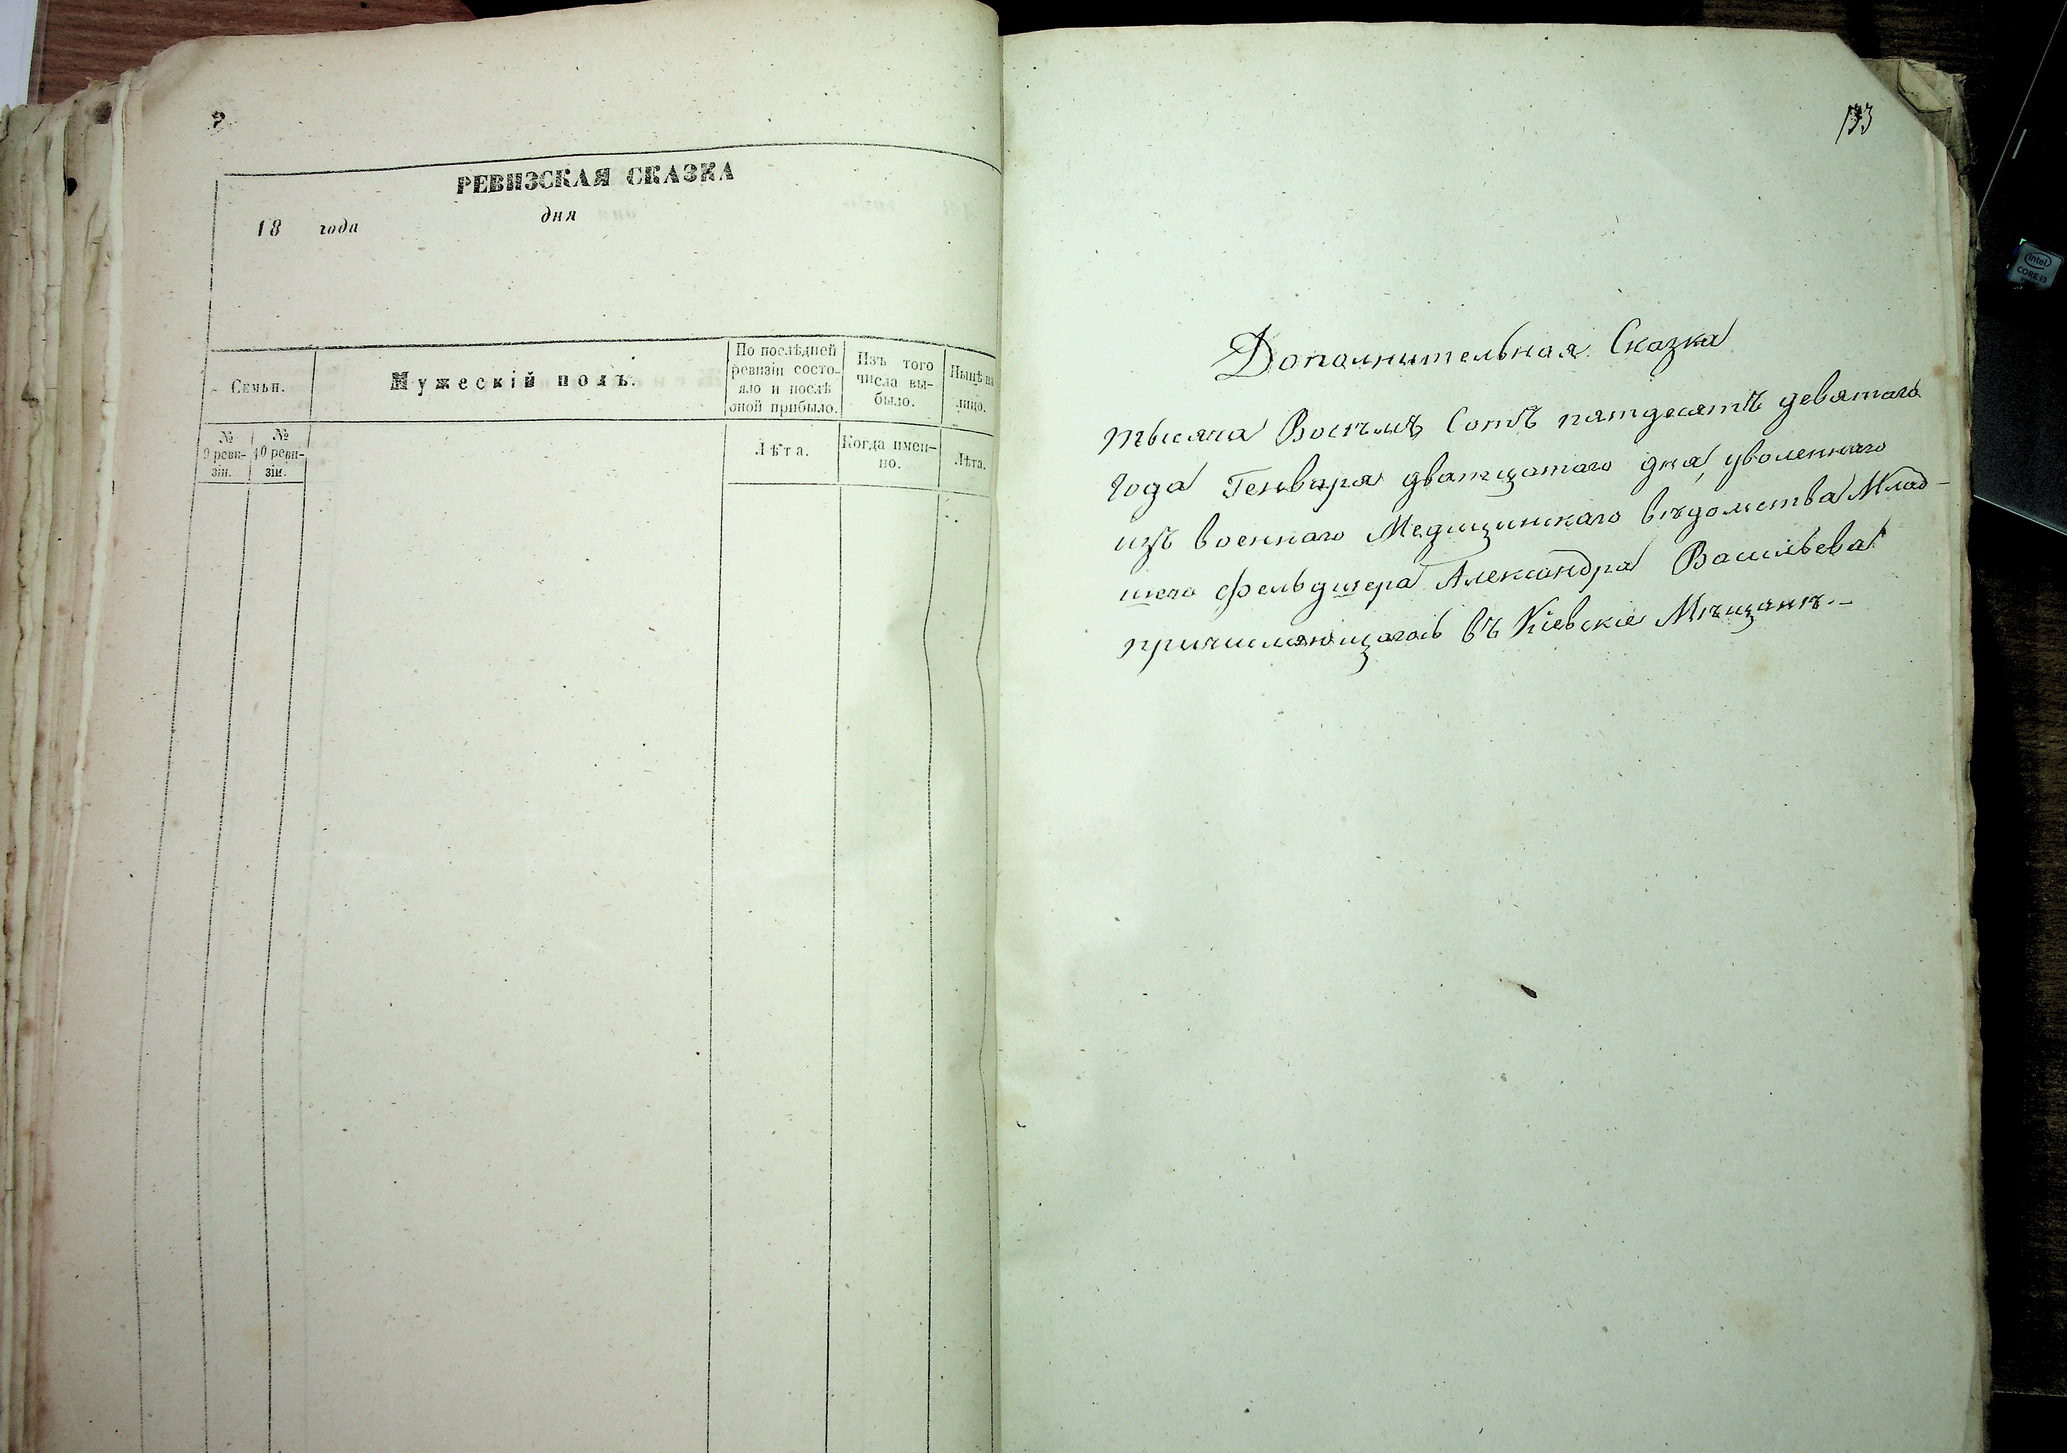 РЕВИЗСКАЯ СКАЗКА
18 года дня
Семьи.
Мужескій полъ.
По послѣдней
ревизіи состо-
яло и послѣ
оной прибыло.
Изъ того
числа вы-
было.
Нынѣ на
лицо.
№
9 реви-
зіи.
№
10 реви-
зіи.
Лѣта.
Когда имен-
но.
Лѣта.
133
Дополнительная Сказка
тысяча Восемъ Сотъ пятдесятъ девятаго
года Генваря дватцатаго дня, уволеннаго
изъ военнаго Медицинскаго вѣдомства Млад-
шего фельдшера Александра Васильева
причисляющагось въ Кіевскіе Мѣщане.-
intel
CORE i3